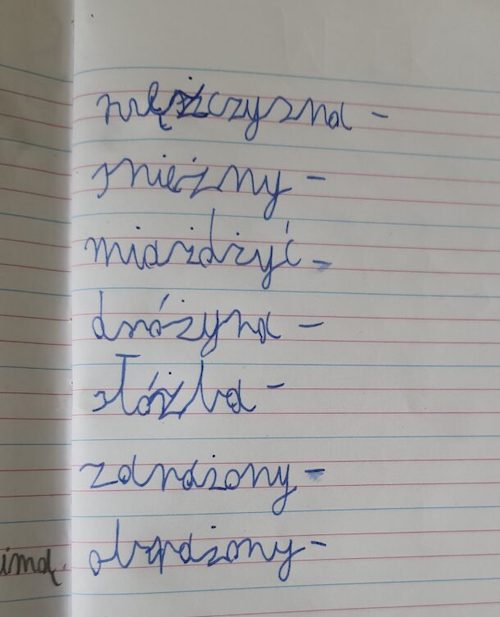 mężczyzna -
snieżny -
miażdżyć -
dróżyna -
słóżba -
zarażony -
obrażony -
imą.